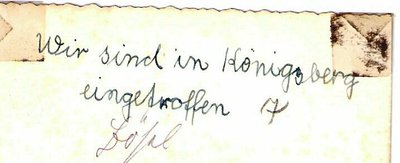 Wir sind in Königsberg
eingetroffen 7